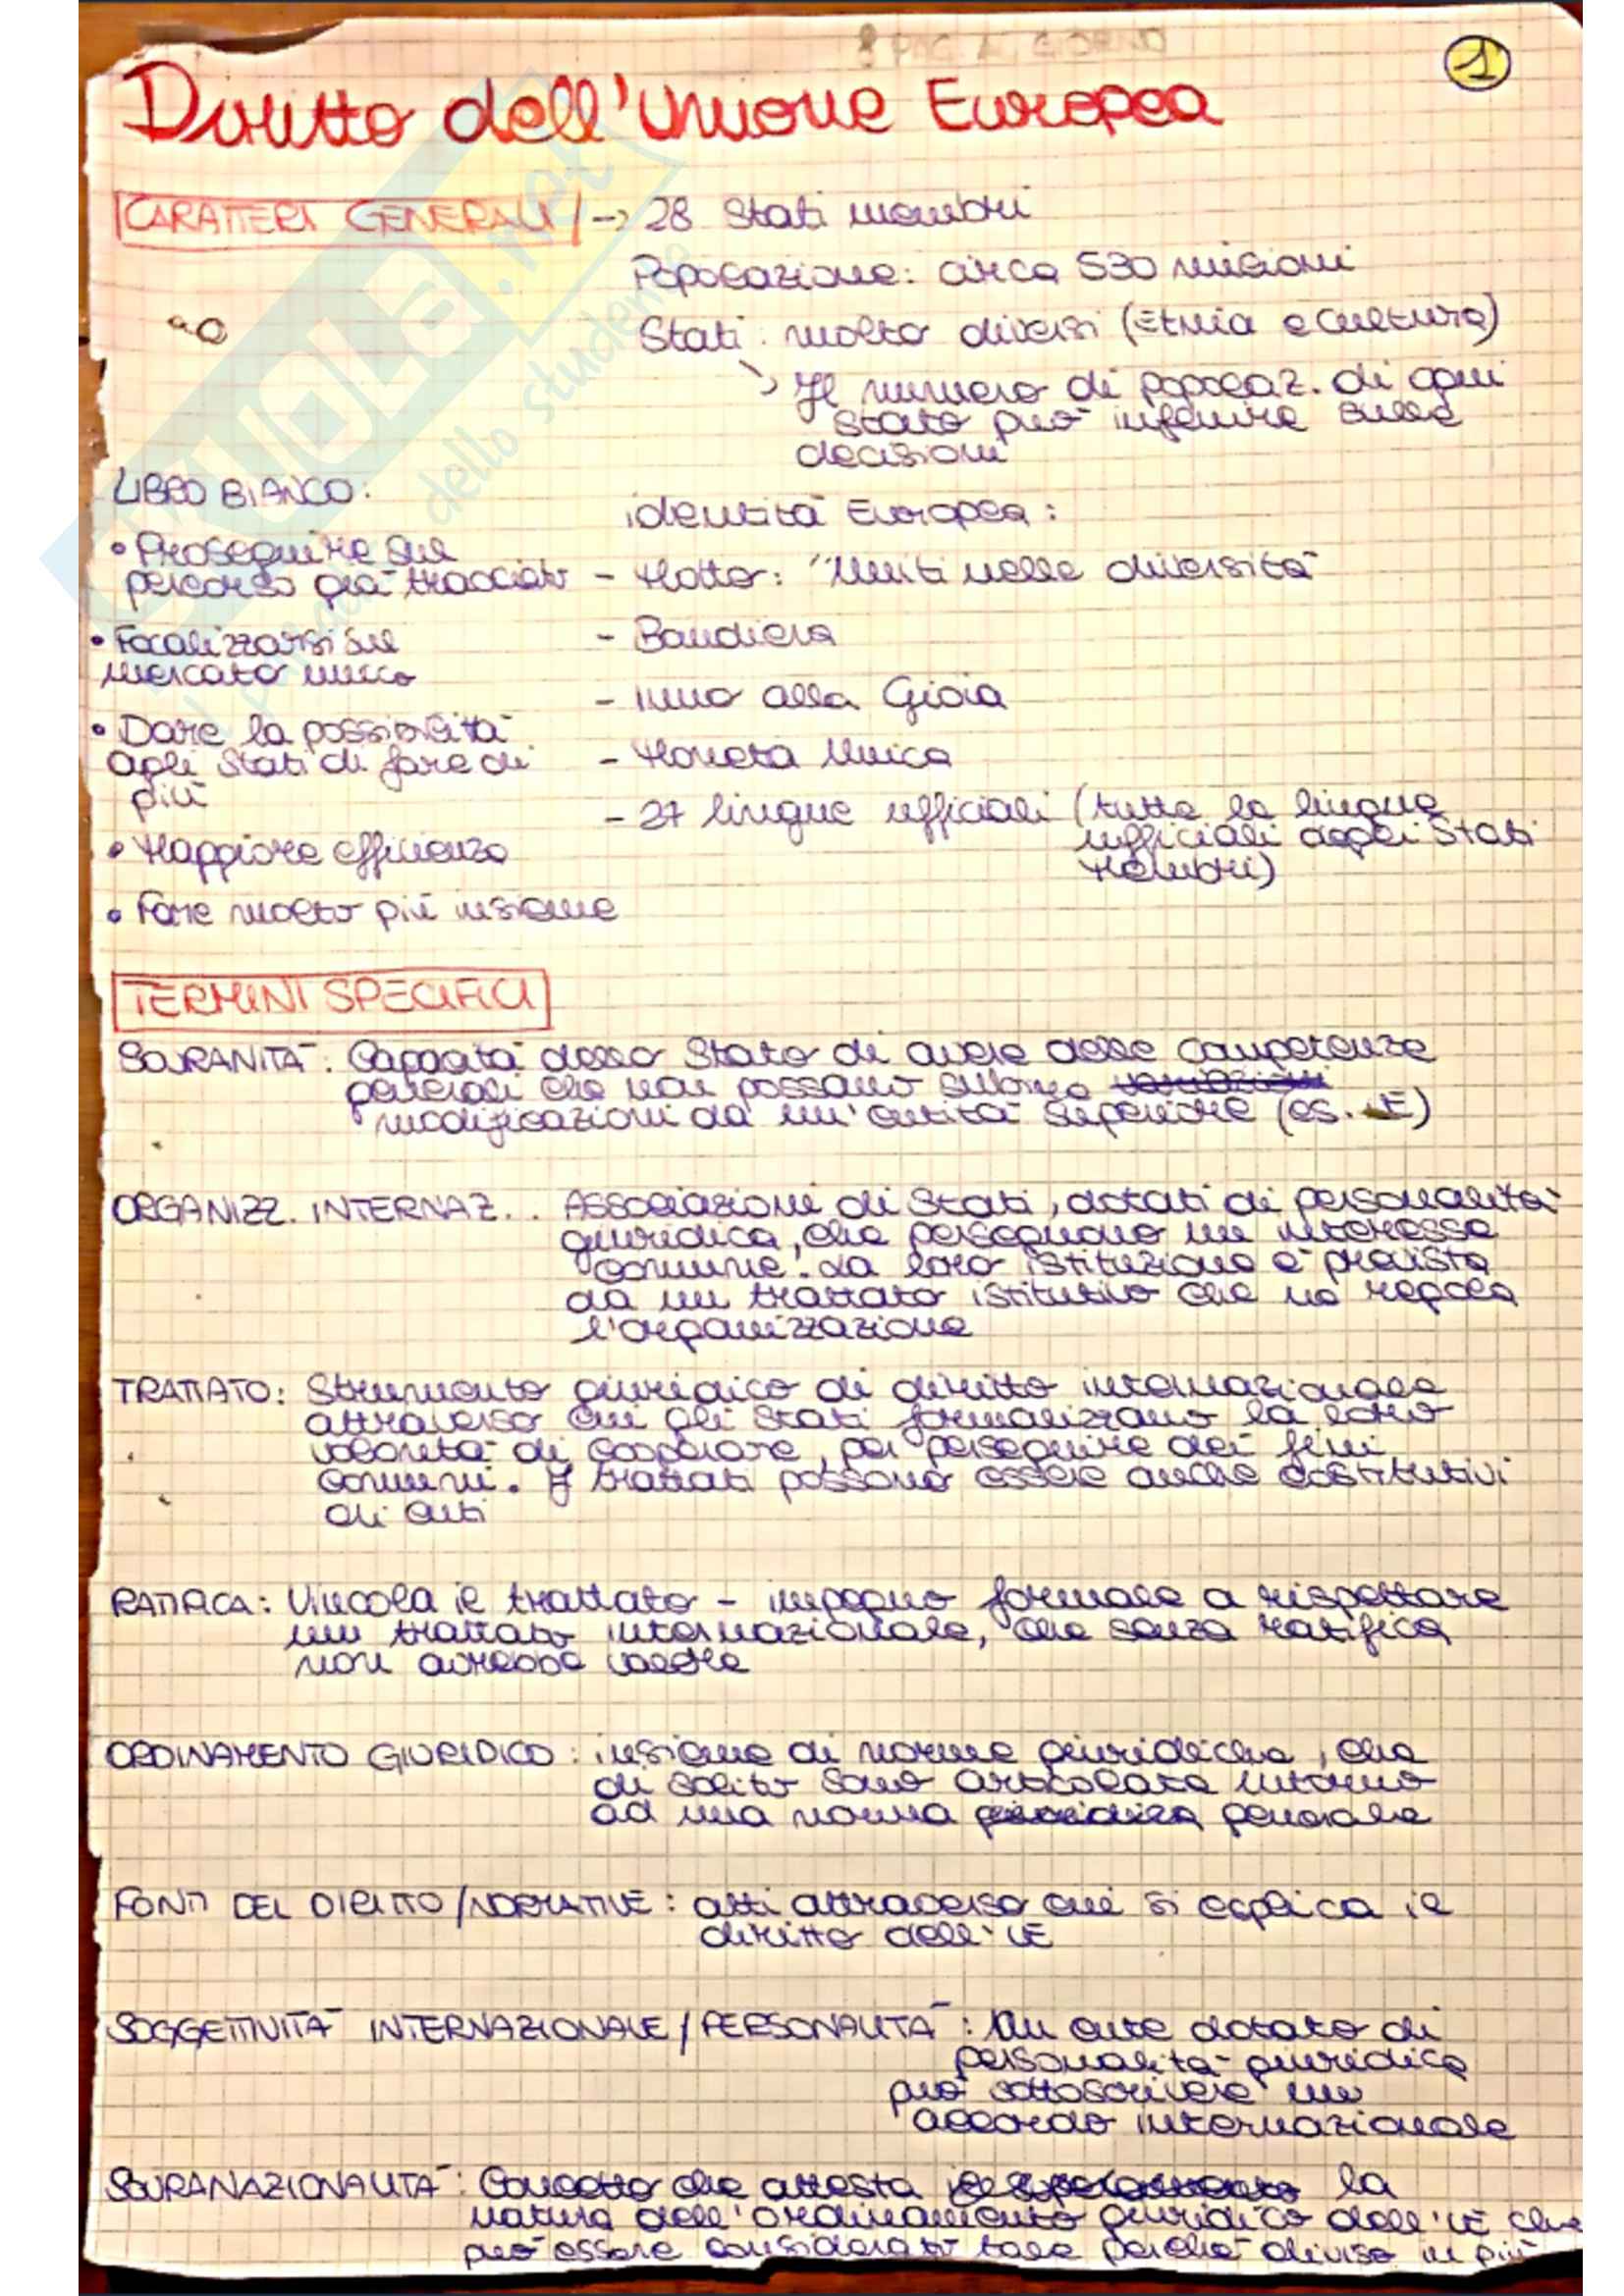 8 PAG. AL GIORNO
1
Diritto dell'Unione Europea
CARATTERI GENERALI -> 28 Stati membri
Popolazione: circa 530 milioni
Stati: molto diversi (Etnia e cultura)
Il numero di popolaz. di ogni
stato può influire sulle
decisioni
LIBRO BIANCO:
• Proseguire sul
percorso già tracciato
• Focalizzarsi sul
mercato unico
• Dare la possibilità
agli Stati di fare di
più
• Maggiore efficienza
• Fare molto più insieme
identità Europea:
- Motto: "Uniti nelle diversità"
- Bandiera
- inno alla Gioia
- Moneta Unica
- 27 lingue ufficiali (tutte le lingue
ufficiali degli Stati
Membri)
TERMINI SPECIFICI
SOVRANITÀ: Capacità dello Stato di avere delle competenze
generali che non possano subire
modificazioni da un'entità superiore (es. UE)
ORGANIZZ. INTERNAZ.: Associazioni di Stati, dotati di personalità
giuridica, che perseguono un interesse
comune. La loro istituzione è prevista
da un trattato istitutivo che ne regola
l'organizzazione
TRATTATO: Strumento giuridico di diritto internazionale
attraverso cui gli Stati formalizzano la loro
volontà di cooperare, per perseguire dei fini
comuni. I trattati possono essere anche costitutivi
di enti
RATIFICA: Vincola il trattato - impegno formale a rispettare
un trattato internazionale, che senza ratifica
non avrebbe valore
ORDINAMENTO GIURIDICO: insieme di norme giuridiche, che
di solito sono articolate intorno
ad una norma giuridica generale
FONTI DEL DIRITTO/NORMATIVE: atti attraverso cui si esplica il
diritto dell'UE
SOGGETTIVITÀ INTERNAZIONALE/PERSONALITÀ: Un ente dotato di
personalità giuridica
può sottoscrivere un
accordo internazionale
SOVRANAZIONALITÀ: Concetto che attesta la
natura dell'ordinamento giuridico dell'UE che
può essere considerato tale perché diviso in più
SKUOLA.net
dello studente